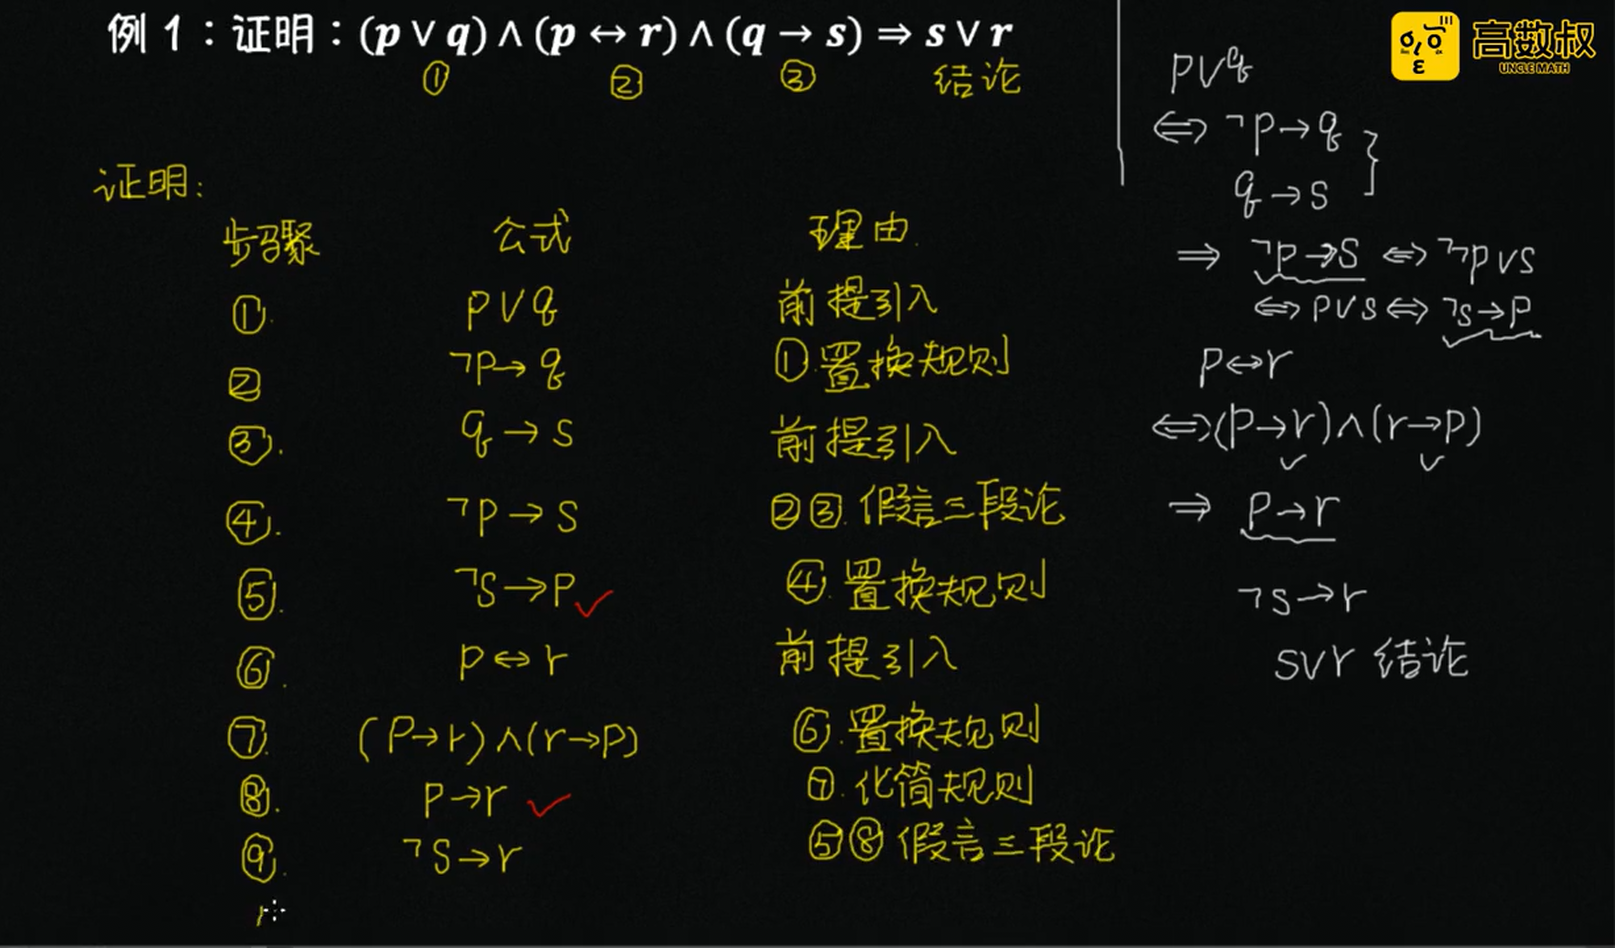 例 1：证明：(p ∨ q) ∧ (p ↔ r) ∧ (q → s) ⇒ s ∨ r
① ② ③ 结论
高数叔
UNCLE MATH
证明:
步骤 公式 理由.
①. p∨q 前提引入
② ¬p→q ①.置换规则
③. q→s 前提引入
④. ¬p→s ②③.假言三段论
⑤. ¬s→p ✓ ④.置换规则
⑥. p↔r 前提引入
⑦. (p→r)∧(r→p) ⑥.置换规则
⑧. p→r ✓ ⑦.化简规则
⑨. ¬s→r ⑤⑧假言三段论
p∨q
⇔ ¬p→q
q→s
⇒ ¬p→s ⇔ ¬¬p∨s
⇔ p∨s ⇔ ¬s→p
p↔r
⇔(p→r)∧(r→p)
⇒ p→r
¬s→r
s∨r 结论